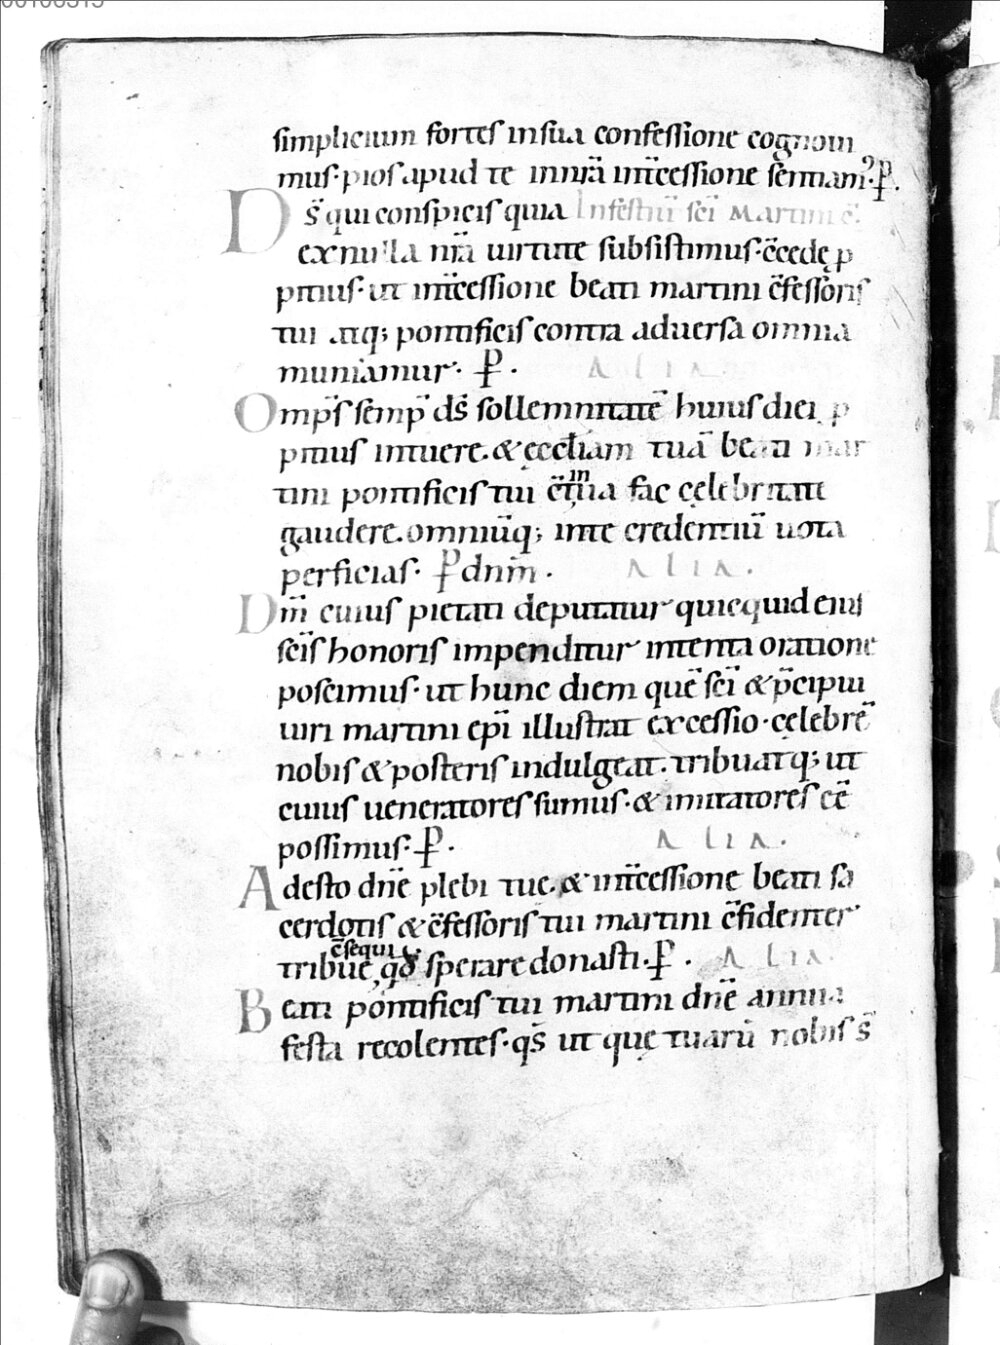 simplicium fortes in sua confessione cognoui
mus· pios apud te in nr̄a int̄cessione sentiam᷒· P̱.
Ds̄ qui conspicis quia In festiū sc̄i Martini ēp.
ex nulla nr̄a uirtute subsistimus· c̄cedę p
pitius· ut int̄cessione beati martini c̄fessoris
tui atq; pontificis contra aduersa omnia
muniamur· P̱. ALIA
Omp̄s semp̄ ds̄ sollemnitatē huius diei p
pitius intuere. & eccłiam tuā beati mar
tini pontificis tui c̄tinua fac celebritate
gaudere. omniūq; in te credentiū uota
perficias· P̱ dnm̄. ALIA.
Dm̄ cuius pietati deputatur quicquid eius
sc̄is honoris impenditur intenta oratione
poscimus· ut hunc diem quē sc̄i & p̄cipui
uiri martini ep̄i illustrat excessio· celebrē
nobis & posteris indulgeat. tribuatq; ut
cuius ueneratores sumus· & imitatores eē
possimus· P̱. ALIA.
Adesto dn̄e plebi tuę. & int̄cessione beati sa
cerdotis & c̄fessoris tui martini c̄fidenter
tribue c̄sequi qđ sperare donasti. P̱. ALIA.
Beati pontificis tui martini dn̄e annua
festa recolentes· qs̄ ut que tuarū nobis s̄